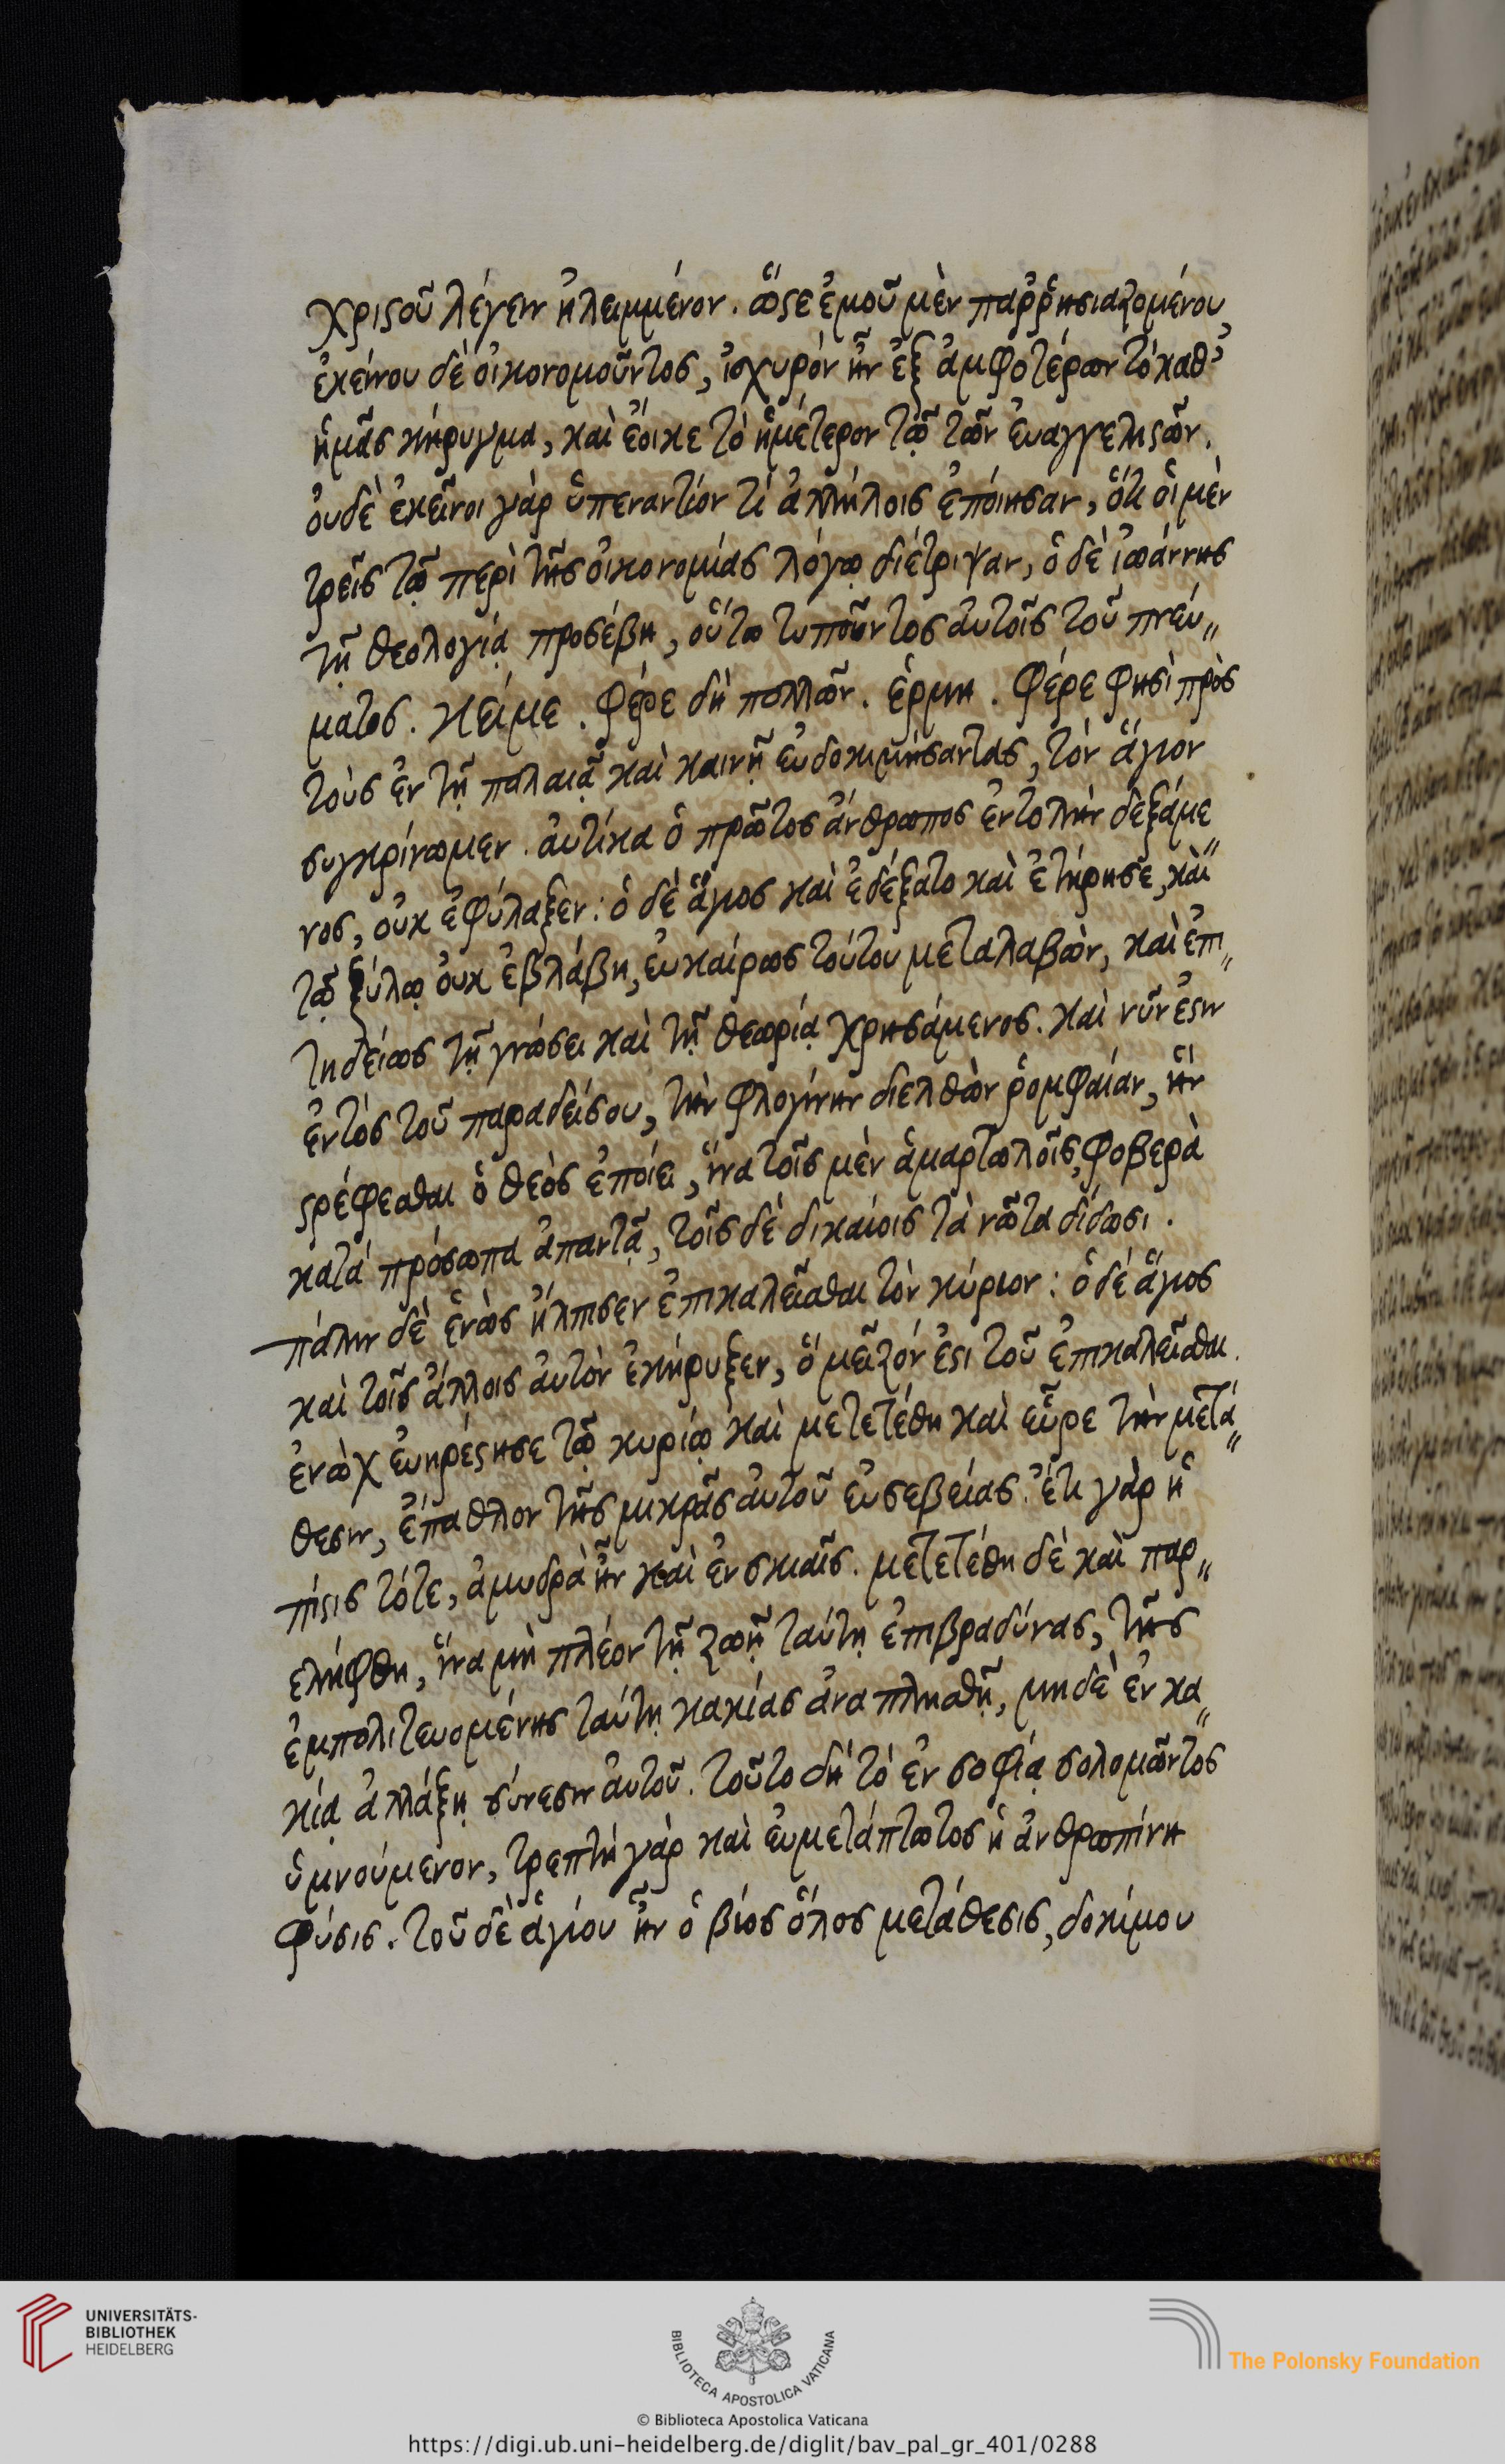 χριστοῦ λέγειν ἠλειμμένον. ὥστε ἐμοῦ μὲν παῤῥησιαζομένου,
ἐκείνου δὲ οἰκονομοῦντος, ἰσχυρὸν ἦν ἐξ ἀμφοτέρων τὸ καθ'
ἡμᾶς κήρυγμα, καὶ ἔοικε τὸ ἡμέτερον τῶ τῶν ἐυαγγελιστῶν.
ὀυδὲ ἐκεῖνοι γὰρ ὑπεναντίον τὶ ἀλλήλοις ἐποίησαν, ὅτι ὁι μὲν
τρεῖς τῶ περὶ τῆς οἰκονομίας λόγω διέτριψαν, ὁ δὲ ἰωάννης
τῆ θεολογία προσέβη, οὕτω τυποῦντος ἀυτοῖς τοῦ πνεύ„
ματος. κείμε. φέρε δὴ πολλῶν. ἑρμη. φέρε φησὶ πρὸς
τοὺς ἐν τῆ παλαιᾶ καὶ καινῆ ἐυδοκιμήσαντας, τὸν ἅγιον
συγκρίνωμεν. ἀυτίκα ὁ πρῶτος ἄνθρωπος ἐντολὴν δεξάμε„
νος, ὀυκ ἐφύλαξεν: ὁ δὲ ἅγιος καὶ ἐδέξατο καὶ ἐτήρησε, καὶ
τῶ ξύλω ὀυκ ἐβλάβη, ἐυκαίρως τούτου μεταλαβὼν, καὶ ἐπι„
τηδείως τῆ γνώσει καὶ τῆ θεωρία χρησάμενος. καὶ νῦν ἔστιν
ἐντὸς τοῦ παραδείσου, τὴν φλογίνην διελθὼν ῥομφαίαν, ἣν
στρέφεσθαι ὁ θεὸς ἐποίει, ἵνα τοῖς μὲν ἁμαρτωλοῖς, φοβερὰ
κατὰ πρόσωπα ἀπαντᾶ, τοῖς δὲ δικαίοις τὰ νῶτα δίδωσι.
πάλιν δὲ ἐνὼς ἤλπισεν ἐπικαλεῖσθαι τὸν κύριον: ὁ δὲ ἅγιος
καὶ τοῖς ἄλλοις ἀυτὸν ἐκήρυξεν, ὅ μεῖζόν ἐστι τοῦ ἐπικαλεῖσθαι.
ἐνὼχ ἐυηρέστησε τῶ κυρίω καὶ μετετέθη καὶ εὗρε τὴν μετά„
θεσιν, ἔπαθλον τῆς μικρᾶς ἀυτοῦ ἐυσεβείας. ἔτι γὰρ ἡ
πίστις τότε, ἀμυδρὰ ἦν καὶ ἐν σκιαῖς. μετετέθη δὲ καὶ παρ„
ελήφθη, ἵνα μὴ πλέον τῆ ζωῆ ταύτη ἐπιβραδύνας, τῆς
ἐμπολιτευομένης ταύτη κακίας ἀναπλησθῆ, μηδὲ ἐν κα„
κία ἀλλάξη σύνεσιν ἀυτοῦ. τοῦτο δὴ τὸ ἐν σοφία σολομῶντος
ὑμνούμενον, τρεπτὴ γὰρ καὶ ἐυμετάπτωτος ἡ ἀνθρωπίνη
φύσις. τοῦ δὲ ἁγίου ἦν ὁ βίος ὅλος μετάθεσις, δοκίμου
UNIVERSITÄTS-
BIBLIOTHEK
HEIDELBERG
BIBLIOTECA APOSTOLICA VATICANA
The Polonsky Foundation
© Biblioteca Apostolica Vaticana
https://digi.ub.uni-heidelberg.de/diglit/bav_pal_gr_401/0288